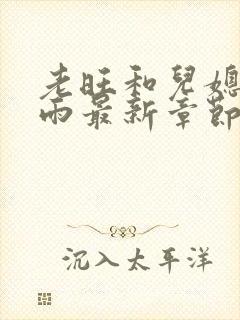 老旺和兒媳
雨最新章節
沉入太平洋